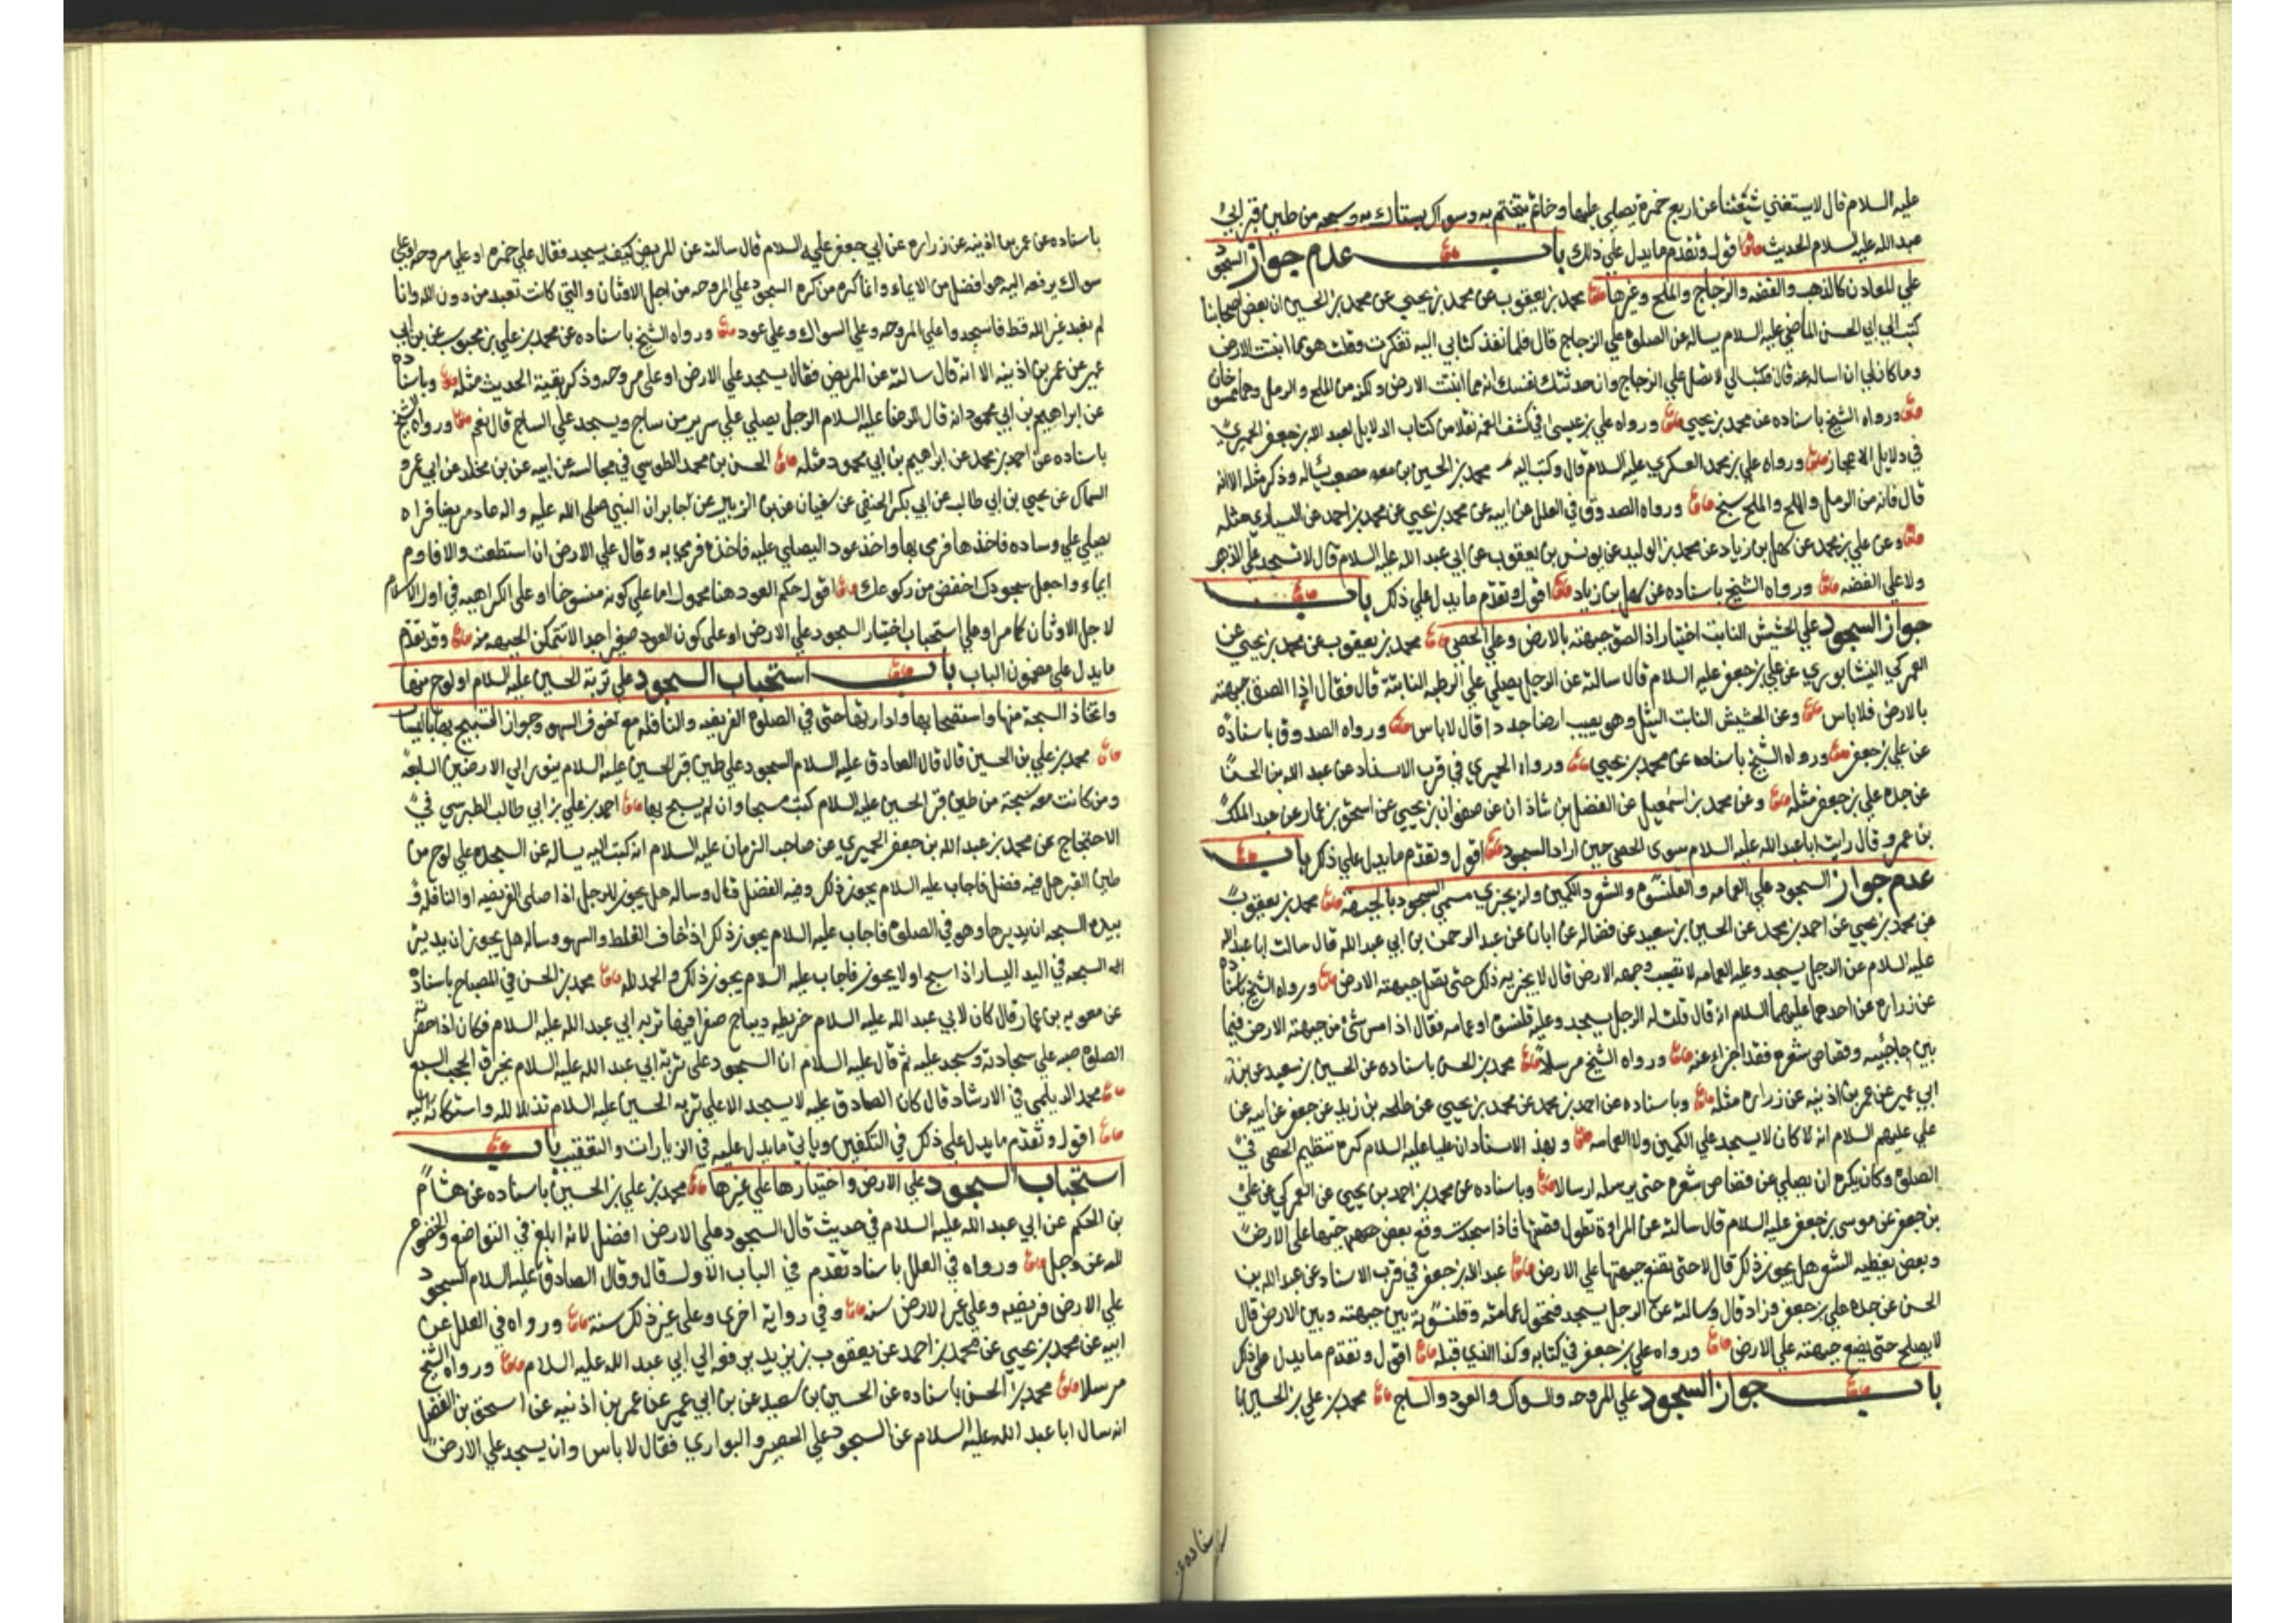 عليه السلام قال لا يستغني شيعتنا عن اربع خمرة يصلي عليها وخاتم يتختم به وسواك يستاك به وسبحه من طين قبر ابي
عبد الله عليه السلام الحديث اقول وتقدم ما يدل علي ذلك باب عدم جواز السجود
علي المعادن كالذهب والفضه والزجاج والملح وغيرها محمد بن يعقوب عن محمد بن يحيي عن محمد بن الحسين ان بعض اصحابنا
كتب الي ابي الحسن الماضي عليه السلام يساله عن الصلوة علي الزجاج قال فلما نفذ كتابي اليه تفكرت وقلت هو مما انبتت الارض
وما كان لي ان اساله عنه قال فكتب الي لا تصل علي الزجاج وان حدثتك نفسك انه مما انبتت الارض ولكنه من الملح والرمل وهما ممسوخان
ورواه الشيخ باسناده عن محمد بن يحيي ورواه علي بن عيسى في كشف الغمه نقلا من كتاب الدلايل لعبد الله بن جعفر الحميري
في دلايل الاعجاز ورواه علي بن محمد العسكري عليه السلام قال وكتب اليه محمد بن الحسين بن مصعب يساله وذكر مثله الا انه
قال فانه من الرمل والملح والملح سبخ ورواه الصدوق في العلل عن ابيه عن محمد بن يحيي عن محمد بن احمد عن السياري مثله
وعن علي بن محمد عن سهل بن زياد عن محمد بن الوليد عن يونس بن يعقوب عن ابي عبد الله عليه السلام قال لا تسجد علي الذهب
ولا علي الفضه ورواه الشيخ باسناده عن سهل بن زياد اقول وتقدم ما يدل علي ذلك باب
جواز السجود علي الحشيش النابت اختيارا اذا الصق جبهته بالارض وعلي الحصي محمد بن يعقوب عن محمد بن يحيي عن
العمركي النيشابوري عن علي بن جعفر عليه السلام قال سالته عن الرجل يصلي علي الرطبه النابتة قال فقال اذا الصق جبهته
بالارض فلا باس وعن الحشيش النابت الثيل وهو يصيب ارضا جددا قال لا باس ورواه الصدوق باسناده
عن علي بن جعفر ورواه الشيخ باسناده عن محمد بن يحيي ورواه الحميري في قرب الاسناد عن عبد الله بن الحسن
عن جده علي بن جعفر مثله وعن محمد بن اسمعيل عن الفضل بن شاذان عن صفوان بن يحيي عن اسحق بن عمار عن عبد الملك
بن عمرو قال رايت ابا عبد الله عليه السلام سوى الحصي حين اراد السجود اقول وتقدم ما يدل علي ذلك باب
عدم جواز السجود علي العمامه والقلنسوه والشعر والكمين وانه يجزي مسمي السجود بالجبهة محمد بن يعقوب
عن محمد بن يحيي عن احمد بن محمد عن الحسين بن سعيد عن فضاله عن ابان عن عبد الرحمن بن ابي عبد الله قال سالت ابا عبد الله
عليه السلام عن الرجل يسجد وعليه العمامه لا تصيب وجهه الارض قال لا يجزيه ذلك حتى تصل جبهته الارض ورواه الشيخ باسناده
عن زراره عن احدهما عليهما السلام انه قال قلت له الرجل يسجد وعليه قلنسوة او عمامه فقال اذا مس شئ من جبهته الارض فيما
بين حاجبيه وقصاص شعره فقد اجزاه عنه ورواه الشيخ مرسلا محمد بن الحسن باسناده عن الحسين بن سعيد عن بن
ابي عمير عن عمر بن اذينه عن زراره مثله وباسناده عن احمد بن محمد عن محمد بن يحيي عن طلحه بن زيد عن جعفر عن ابيه عن
علي عليهم السلام انه كان لا يسجد علي الكمين ولا العمامه وبهذ الاسناد ان عليا عليه السلام كره تنظيم الحصي في
الصلوة وكان يكره ان يصلي عن قصاص شعره حتي يرسله ارسالا وباسناده عن محمد بن احمد بن يحيي عن العمركي عن علي
بن جعفر عن موسى بن جعفر عليه السلام قال سالته عن المراة تطول قصتها فاذا سجدت وقع بعض جبهتها علي الارض
وبعض يغطيه الشعر هل يجوز ذلك قال لا حتي تضع جبهتها علي الارض عبد الله بن جعفر في قرب الاسناد عن عبد الله بن
الحسن عن جده علي بن جعفر وزاد قال وسالته عن الرجل يسجد فتحول عمامته وقلنسوته بين جبهته وبين الارض قال
لا يصلح حتي يضع جبهته علي الارض ورواه علي بن جعفر في كتابه وكذا الذي قبله اقول وتقدم ما يدل علي ذلك
باب جواز السجود علي المروحه والسواك والعود والساج محمد بن علي بن الحسين
باسناده عن عمر بن اذينه عن زراره عن ابي جعفر عليه السلام قال سالته عن المريض كيف يسجد فقال علي خمره او علي مروحه او علي
سواك يرفعه اليه هو افضل من الايماء وانما كره من كره السجود علي المروحه من اجل الاوثان والتي كانت تعبد من دون الله وانا
لم نعبد غير الله قط فاسجدوا علي المروحه وعلي السواك وعلي عود ورواه الشيخ باسناده عن محمد بن علي بن محبوب عن بن ابي
عمير عن عمر بن اذينه الا انه قال سالته عن المريض فقال يسجد علي الارض او علي مروحه وذكر بقية الحديث مثله وباسناده
عن ابراهيم بن ابي محمود انه قال للرضا عليه السلام الرجل يصلي علي سرير من ساج ويسجد علي الساج قال نعم ورواه الشيخ
باسناده عن احمد بن محمد عن ابراهيم بن ابي محمود مثله الحسن بن محمد الطوسي في مجالسه عن ابيه عن بن مخلد عن ابي عمرو
السماك عن يحيي بن ابي طالب عن ابي بكر الحنفي عن سفيان عن بن الزبير عن جابر ان النبي صلي الله عليه واله عاد مريضا فراه
يصلي علي وساده فاخذها فرمي بها واخذ عودا ليصلي عليه فاخذه فرمي به وقال علي الارض ان استطعت والا فاوم
ايماء واجعل سجودك اخفض من ركوعك اقول حكم العود هنا محمول اما علي كونه منسوخا او علي الكراهيه في اول الاسلام
لاجل الاوثان كما مر او علي استحباب اختيار السجود علي الارض او علي كون العود صغيرا جدا لا تتمكن الجبهه منه وقد تقدم
ما يدل علي مضمون الباب باب استحباب السجود علي تربة الحسين عليه السلام او لوح منها
واتخاذ السبحة منها واستصحابها وادارتها حتي في الصلوة الفريضه والنافله مع خوف السهو وجواز التسبيح بها باليسار
محمد بن علي بن الحسين قال قال الصادق عليه السلام السجود علي طين قبر الحسين عليه السلام ينور الي الارضين السبعه
ومن كانت معه سبحة من طين قبر الحسين عليه السلام كتب مسبحا وان لم يسبح بها احمد بن علي بن ابي طالب الطبرسي في
الاحتجاج عن محمد بن عبد الله بن جعفر الحميري عن صاحب الزمان عليه السلام انه كتب اليه يساله عن السجده علي لوح من
طين القبر هل فيه فضل فاجاب عليه السلام يجوز ذلك وفيه الفضل قال وساله هل يجوز للرجل اذا صلي الفريضه او النافله و
بيده السبحه ان يديرها وهو في الصلوة فاجاب عليه السلام يجوز ذلك اذا خاف الغلط والسهو وساله هل يجوز ان يدير
السبحه في اليد اليسار اذا سبح او لا يجوز فاجاب عليه السلام يجوز ذلك والحمد لله محمد بن الحسن في المصباح باسناده
عن معويه بن عمار قال كان لابي عبد الله عليه السلام خريطه ديباج صفرا فيها تربه ابي عبد الله عليه السلام فكان اذا حضر
الصلوة صبه علي سجادته وسجد عليه ثم قال عليه السلام ان السجود علي تربة ابي عبد الله عليه السلام يخرق الحجب السبع
محمد الديلمي في الارشاد قال كان الصادق عليه لا يسجد الا علي تربه الحسين عليه السلام تذللا لله واستكانة اليه
اقول وتقدم ما يدل علي ذلك في التكفين وياتي ما يدل عليه في الزيارات والتعقيب باب
استحباب السجود علي الارض واختيارها علي غيرها محمد بن علي بن الحسين باسناده عن هشام
بن الحكم عن ابي عبد الله عليه السلام في حديث قال السجود علي الارض افضل لانه ابلغ في التواضع والخضوع
لله عز وجل ورواه في العلل باسناد تقدم في الباب الاول قال وقال الصادق عليه السلام السجود
علي الارض فريضه وعلي غير الارض سنه وفي رواية اخري وعلي غير ذلك سنة ورواه في العلل عن
ابيه عن محمد بن يحيي عن محمد بن احمد عن يعقوب بن يزيد يرفعه الي ابي عبد الله عليه السلام ورواه الشيخ
مرسلا محمد بن الحسن باسناده عن الحسين بن سعيد عن بن ابي عمير عن عمر بن اذنيه عن اسحق بن الفضل
انه سال ابا عبد الله عليه السلام عن السجود علي الحصير والبواري فقال لا باس وان يسجد علي الارض